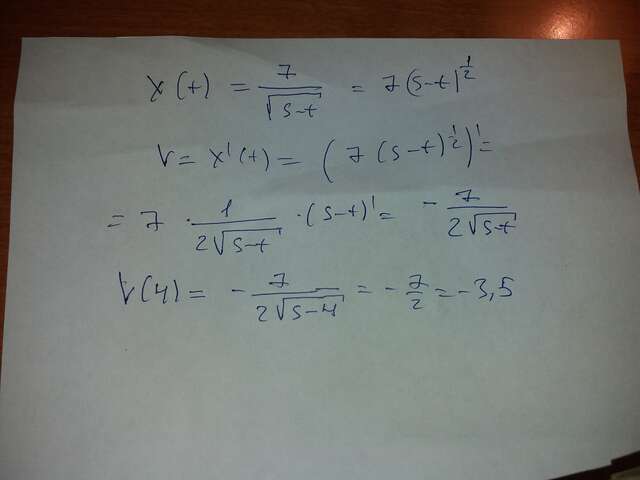 x(t) = 7/√(5-t) = 7(5-t)^(1/2)
V = x'(t) = (7(5-t)^(1/2))' =
= 7 · 1/(2√(5-t)) · (5-t)' = - 7/(2√(5-t))
V(4) = - 7/(2√(5-4)) = - 7/2 = -3,5